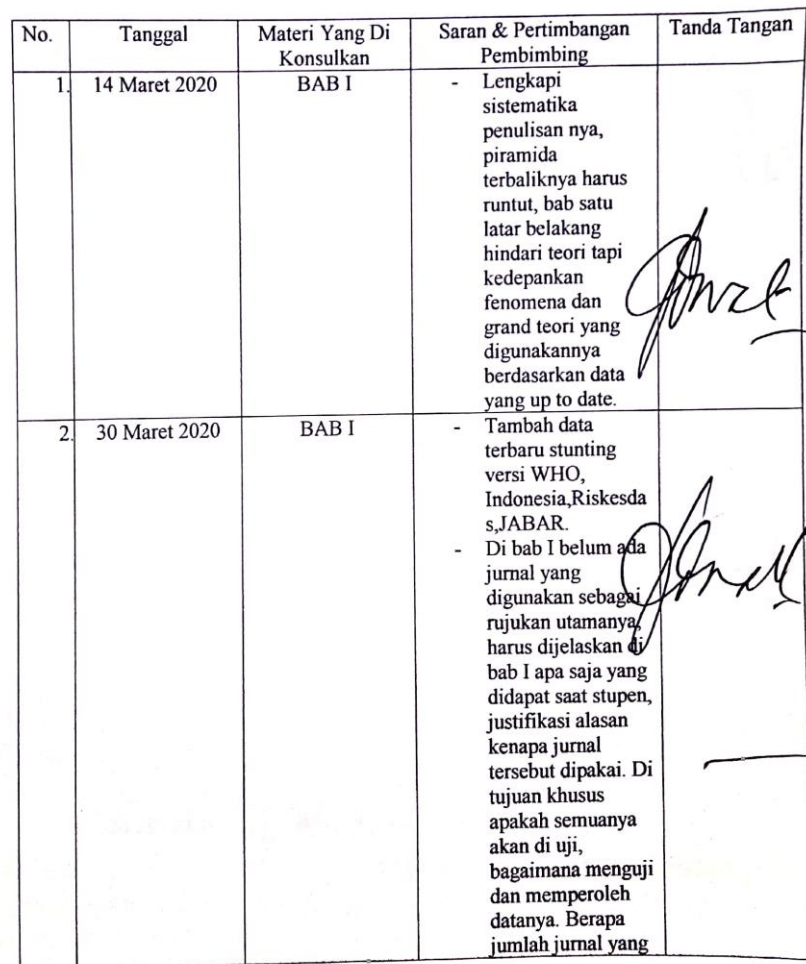 No. Tanggal Materi Yang Di Konsulkan Saran & Pertimbangan Pembimbing Tanda Tangan
1. 14 Maret 2020 BAB I - Lengkapi
sistematika
penulisan nya,
piramida
terbaliknya harus
runtut, bab satu
latar belakang
hindari teori tapi
kedepankan
fenomena dan
grand teori yang
digunakannya
berdasarkan data
yang up to date.
2. 30 Maret 2020 BAB I - Tambah data
terbaru stunting
versi WHO,
Indonesia,Riskesda
s,JABAR.
- Di bab I belum ada
jurnal yang
digunakan sebagai
rujukan utamanya,
harus dijelaskan di
bab I apa saja yang
didapat saat stupen,
justifikasi alasan
kenapa jurnal
tersebut dipakai. Di
tujuan khusus
apakah semuanya
akan di uji,
bagaimana menguji
dan memperoleh
datanya. Berapa
jumlah jurnal yang